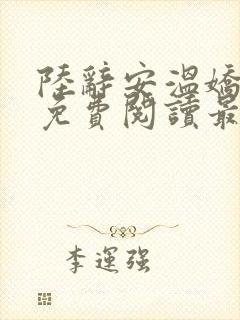 陸辭安溫嬌
免費閱讀最
李運強